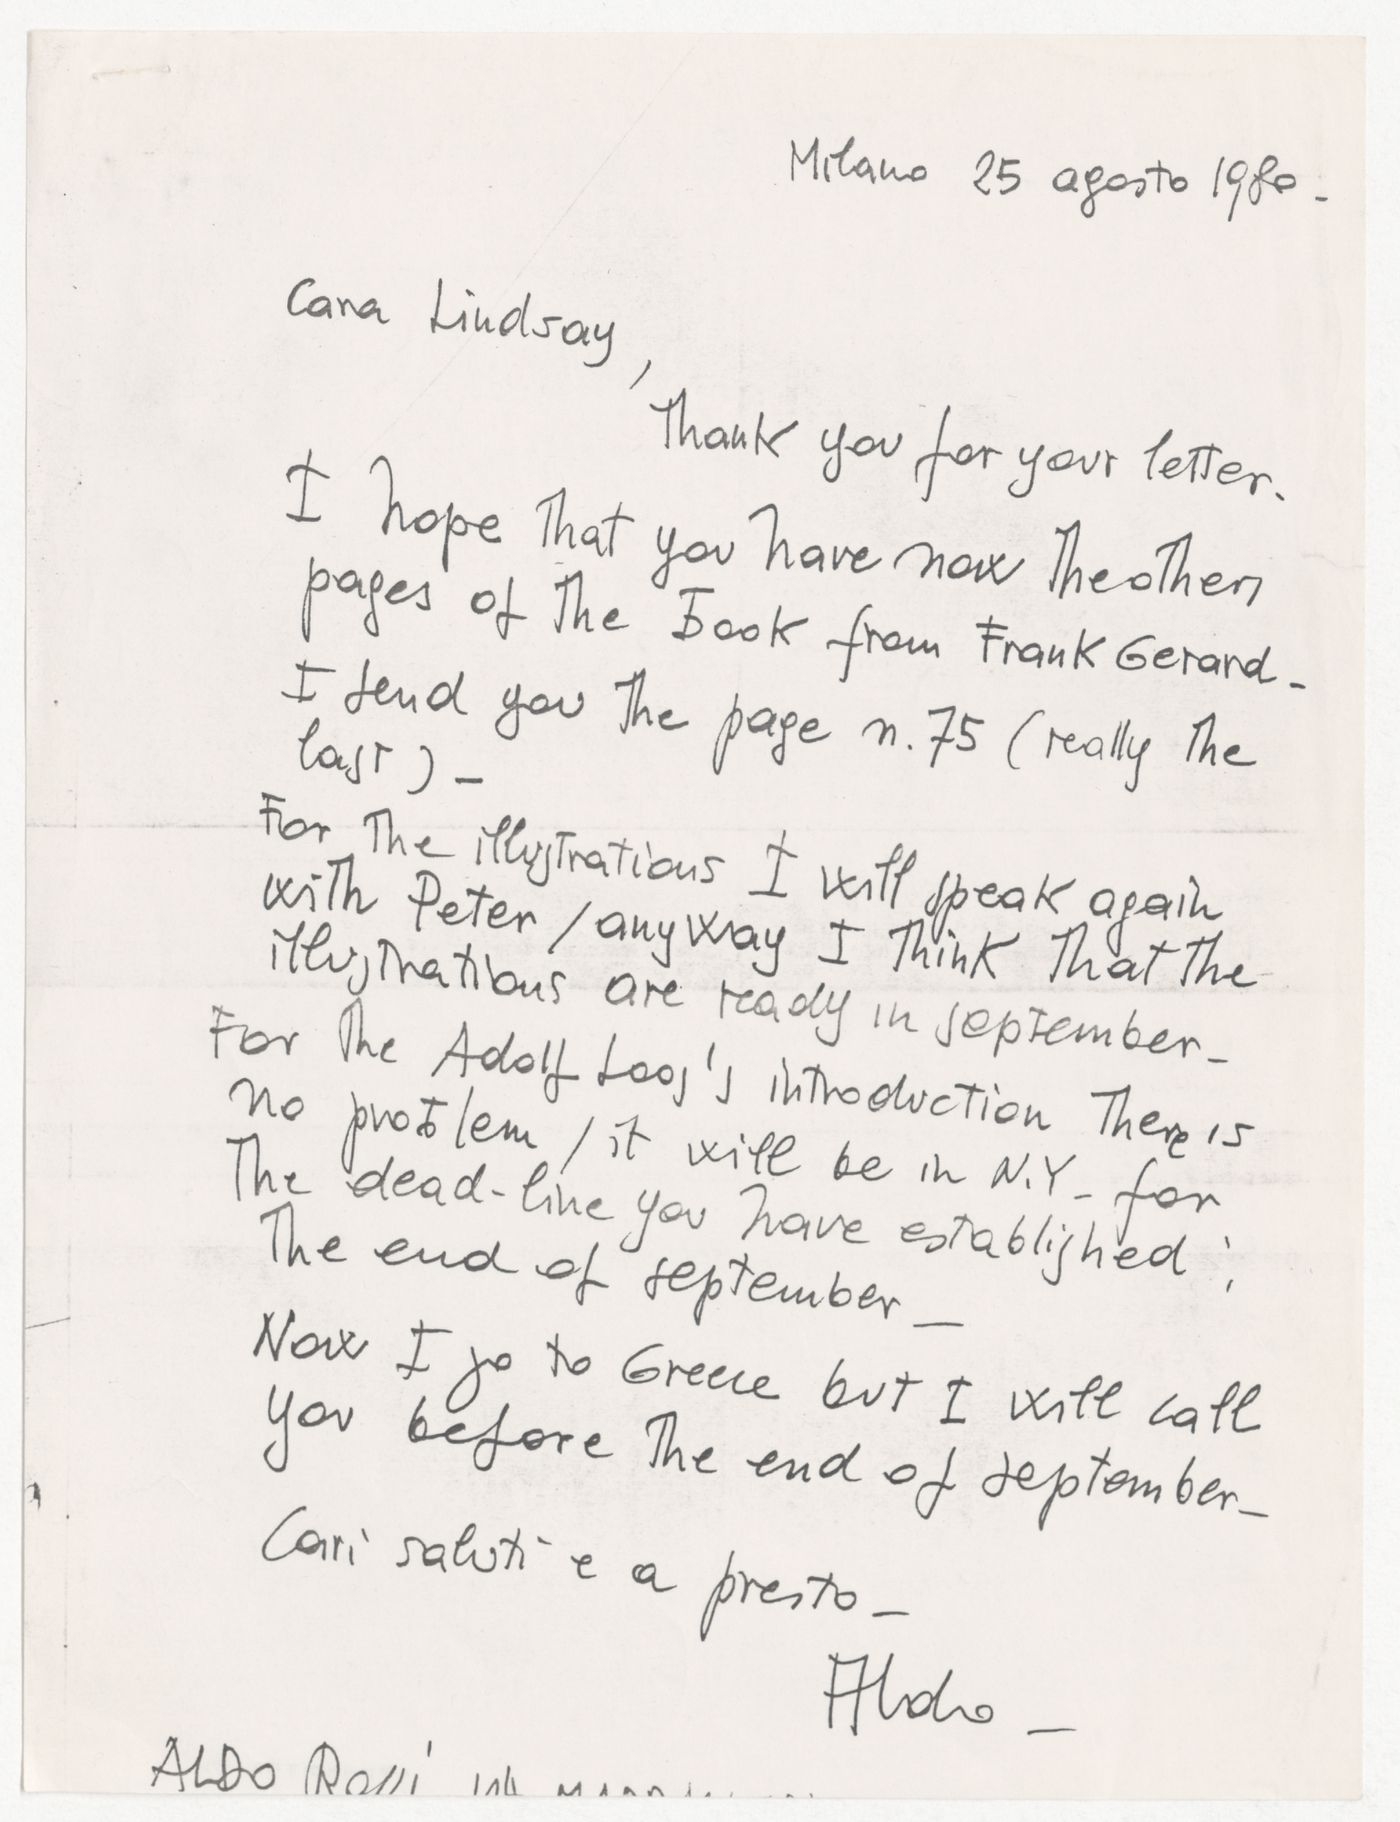 Milano 25 agosto 1980.-
Cara Lindsay,
Thank you for your letter.
I hope that you have now the other
pages of the Book from Frank Gerard-
I send you the page n. 75 (really the
last)-
For the illustrations I will speak again
with Peter / anyway I think that the
illustrations are ready in september-
For the Adolf Loos's introduction there is
no problem / it will be in N.Y- for
the dead-line you have established;
the end of september-
Now I go to Greece but I will call
you before the end of september-
Cari saluti e a presto-
Aldo-
ALDO Rossi